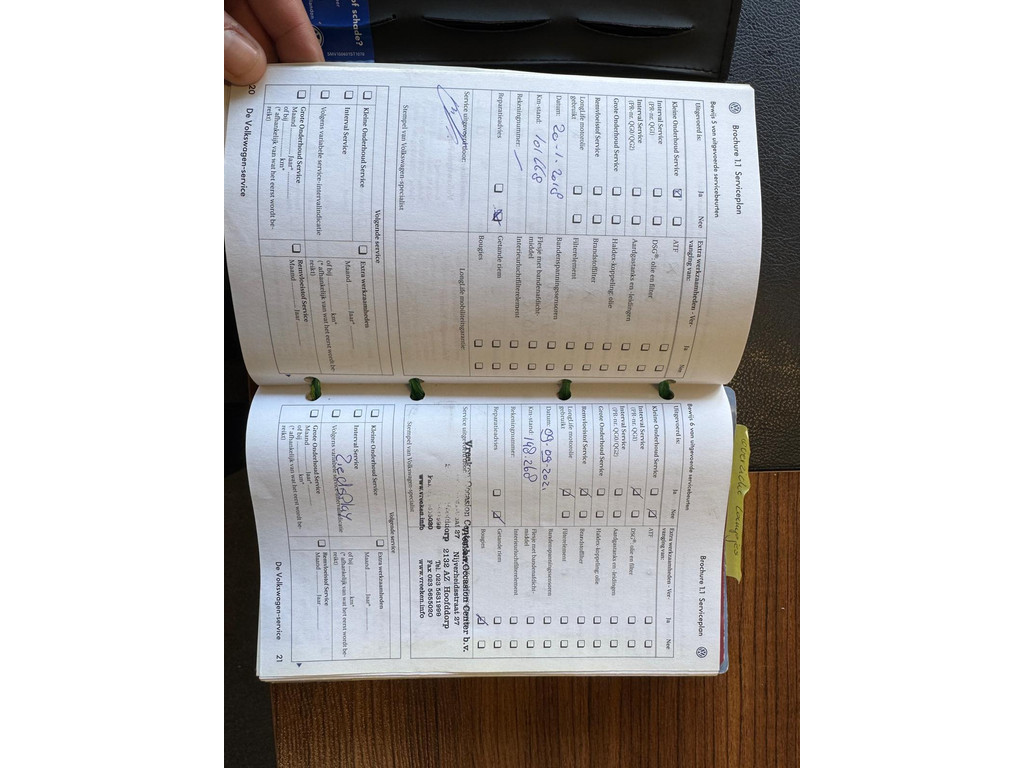 of schade?
Brochure 1.1 Serviceplan
Bewijs 5 van uitgevoerde servicebeurten
Uitgevoerd is: Ja Nee
Kleine Onderhoud Service
Interval Service
(PR-nr. QG1)
Interval Service
(PR-nr. QG0/QG2)
Grote Onderhoud Service
Remvloeistof Service
LongLife motorolie
gebruikt
Datum: 20-1-2018
Km-stand: 101668
Rekeningnummer:
Reparatieadvies
Service uitgevoerd door:
Stempel van Volkswagen-specialist
Extra werkzaamheden - Ver-
vanging van: Ja Nee
ATF
DSG®: olie en filter
Aardgastanks en -leidingen
Haldex-koppeling: olie
Brandstoffilter
Filterelement
Bandenspanningssensoren
Flesje met bandenafdicht-
middel
Interieurluchtfilterelement
Getande riem
Bougies
LongLife mobiliteitsgarantie
Volgende service
Kleine Onderhoud Service
Interval Service
Volgens variabele service-intervalindicatie
Grote Onderhoud Service
Maand Jaar*
of bij km*
(* afhankelijk van wat het eerst wordt be-
reikt)
Extra werkzaamheden
Maand Jaar*
of bij km*
(* afhankelijk van wat het eerst wordt be-
reikt)
Remvloeistof Service
Maand Jaar
20 De Volkswagen-service
Brochure 1.1 Serviceplan
Bewijs 6 van uitgevoerde servicebeurten
Uitgevoerd is: Ja Nee
Kleine Onderhoud Service
Interval Service
(PR-nr. QG1)
Interval Service
(PR-nr. QG0/QG2)
Grote Onderhoud Service
Remvloeistof Service
LongLife motorolie
gebruikt
Datum: 09-09-2021
Km-stand: 148.268
Rekeningnummer:
Reparatieadvies
Service uitgevoerd door:
Vroeken Occasion Center b.v.
Nijverheidsstraat 27
2132 AZ Hoofddorp
Tel. 023 5631999
Fax 023 5655020
www.vroeken.info
Stempel van Volkswagen-specialist
Extra werkzaamheden - Ver-
vanging van: Ja Nee
ATF
DSG®: olie en filter
Aardgastanks en -leidingen
Haldex-koppeling: olie
Brandstoffilter
Filterelement
Bandenspanningssensoren
Flesje met bandenafdicht-
middel
Interieurluchtfilterelement
Getande riem
Bougies
Volgende service
Kleine Onderhoud Service
Interval Service
Volgens variabele
Grote Onderhoud Service
Maand Jaar*
of bij km*
(* afhankelijk van wat het eerst wordt be-
reikt)
Extra werkzaamheden
Maand Jaar*
of bij km*
(* afhankelijk van wat het eerst wordt be-
reikt)
Remvloeistof Service
Maand Jaar
De Volkswagen-service 21